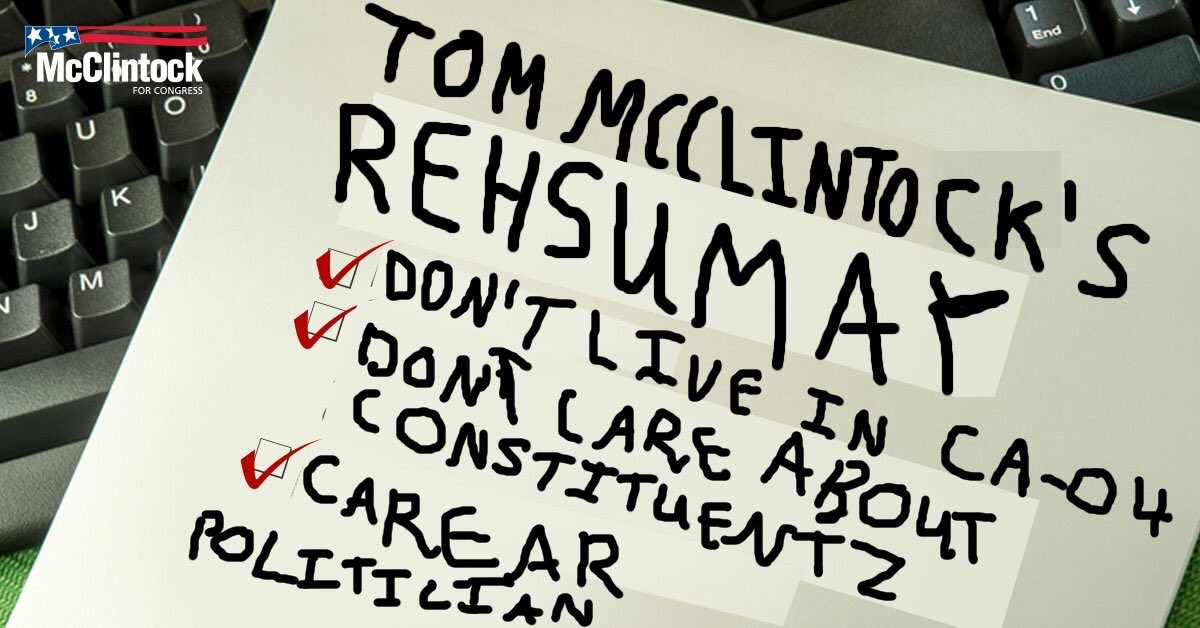 McClintock
FOR CONGRESS
TOM MCCLINTOCK'S
REHSUMAY
DON'T LIVE IN CA-04
DONT CARE ABOUT
CONSTITUENTZ
CAREAR
POLITICIAN
* 8
U
O
J
K
M
N
1
End
0